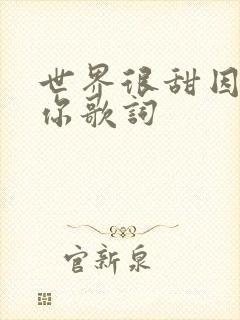 世界很甜因
你歌詞
官新泉